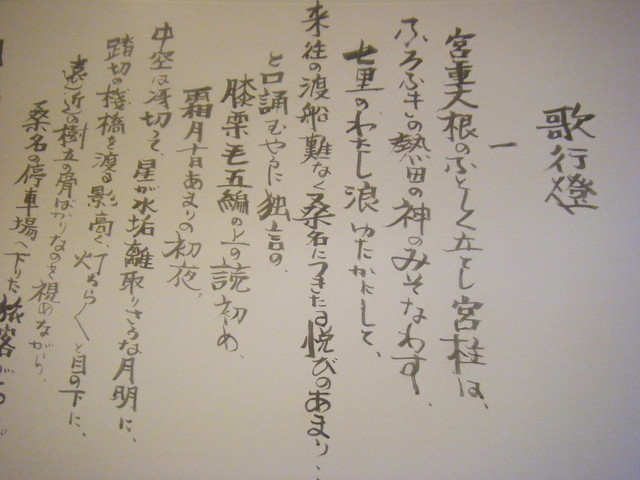 歌行燈
一
宮重大根のふとしく立てし宮柱は、
ふろふきの熱田の神のみそなわす、
七里のわたし浪ゆたかにして、
来往の渡船難なく桑名につきたる悦びのあまり…
と口誦むやうに独言の、
膝栗毛五編の上の読初め、
霜月十日あまりの初夜、
中空は冴切つて、星が水垢離取りさうな月明に、
踏切の桟橋を渡る影高く、灯ちらちらと目の下に、
遠近の樹立の骨ばかりなのを視めながら、
桑名の停車場へ下りた旅客がある。